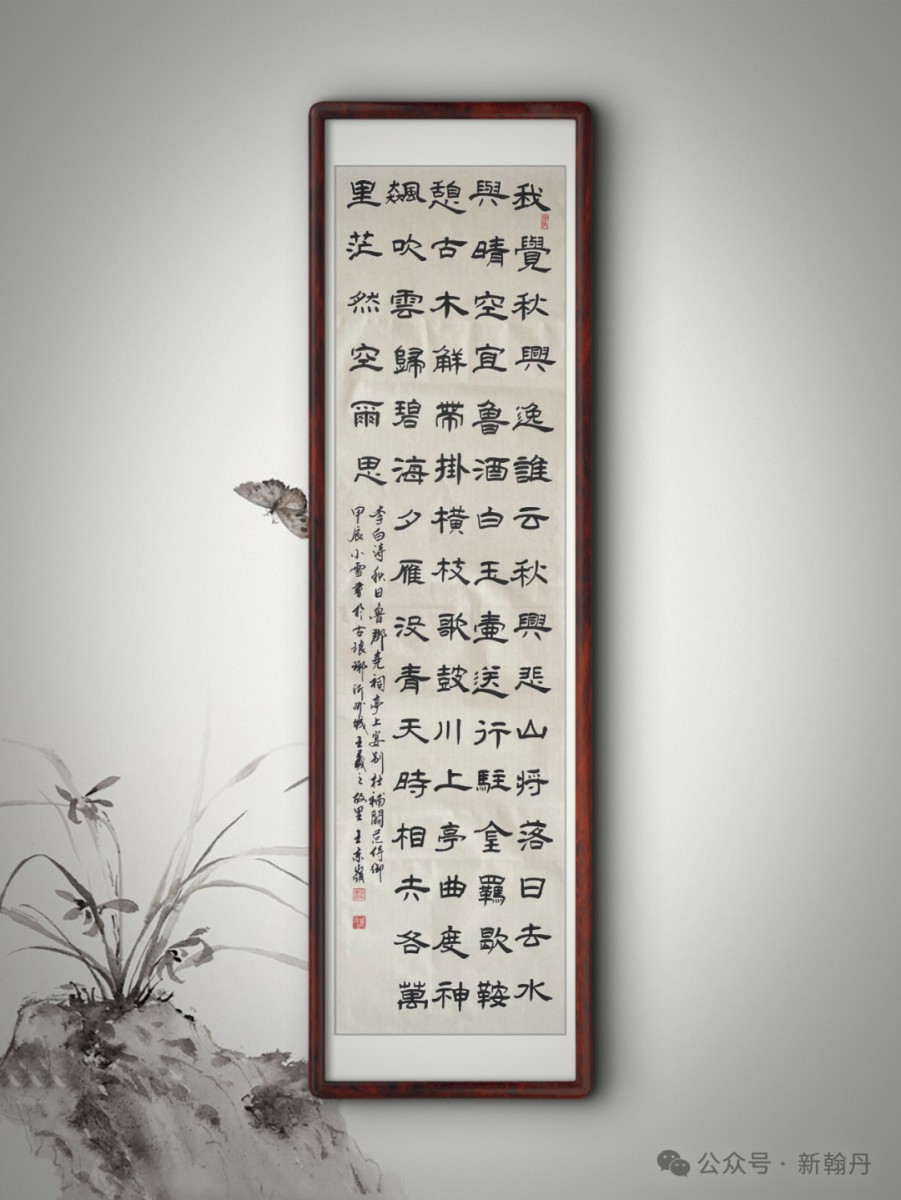 我覺秋興逸誰云秋興悲山將落日去水
與晴空宜魯酒白玉壷送行駐金羈歇鞍
憩古木解帶掛橫枝歌鼓川上亭曲度神
飆吹雲歸碧海夕雁没青天時相失各萬
里茫然空爾思
李白詩秋日魯郡堯祠亭上宴别杜補闕范侍御
甲辰小雪書於古琅琊沂州城王羲之故里王東嶺
公众号·新翰丹